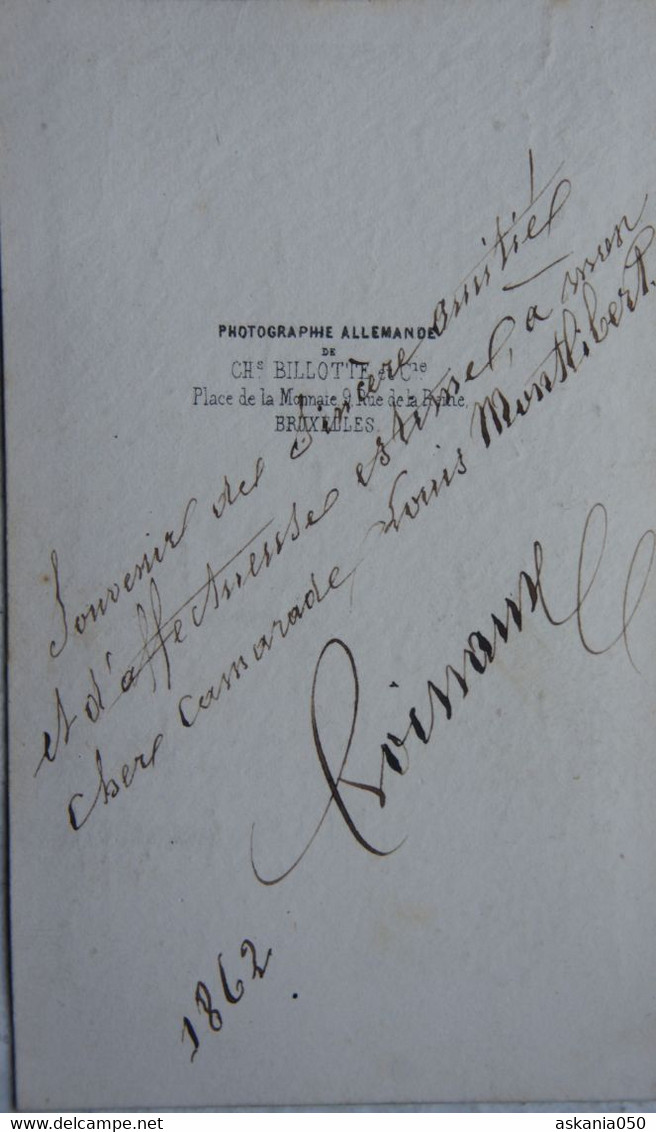 PHOTOGRAPHIE ALLEMANDE
DE
CHs BILLOTTE et Cie
Place de la Monnaie 9, Rue de la Reine.
BRUXELLES.
Souvenir de Sincère amitié
et d'affectueuse estime, à mon
cher camarade, Louis Monthibert.
1862.
delcampe.net
askania050